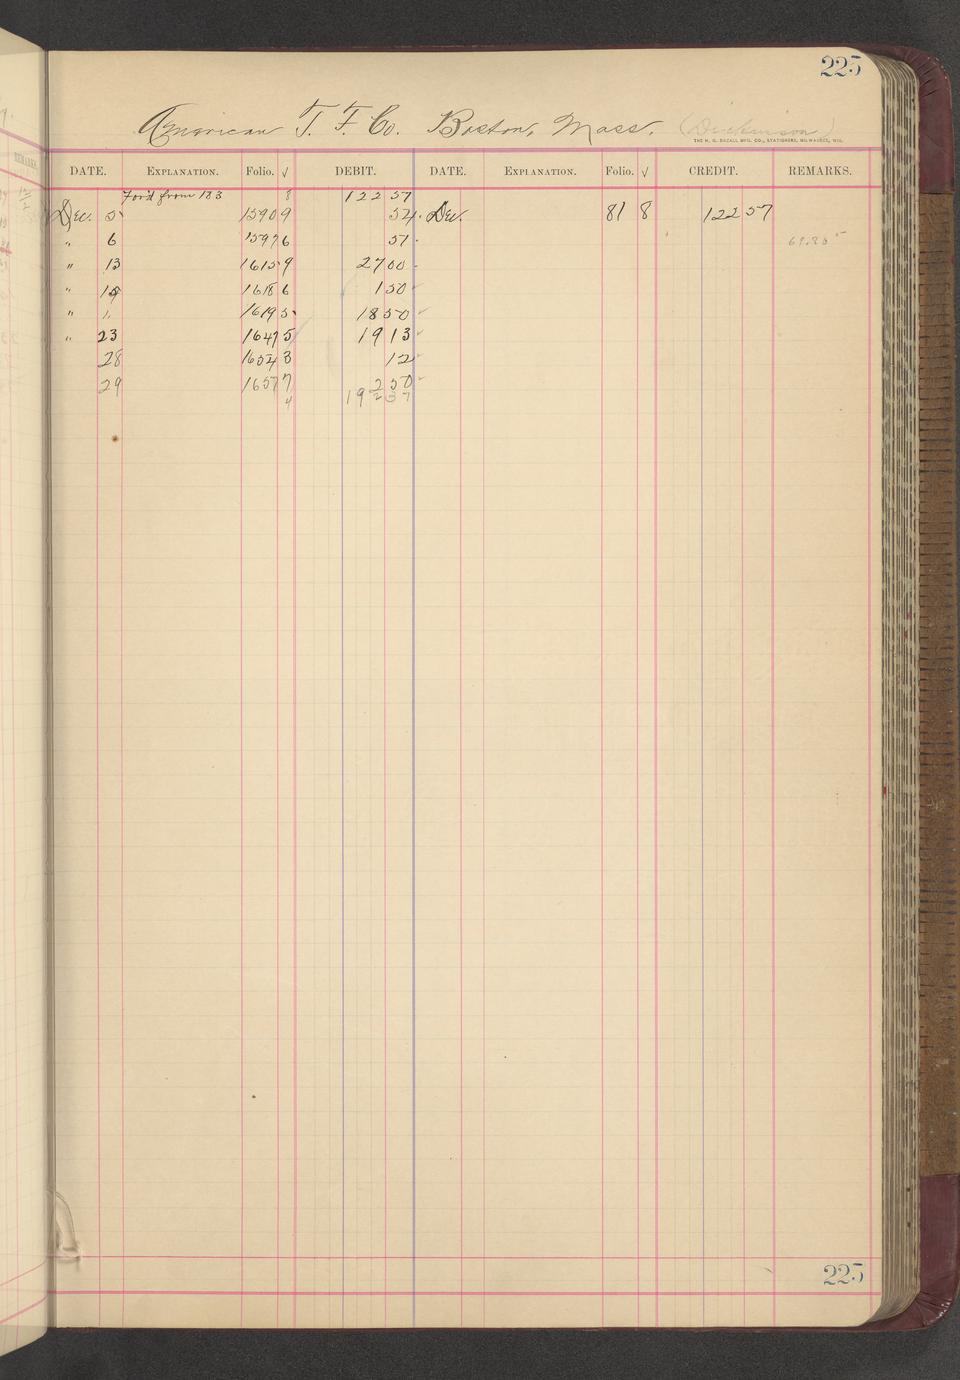 225
American T. F. Co. Boston, Mass. (Dickinson)
THE H. G. RAZALL MFG. CO., STATIONERS, MILWAUKEE, WIS.
DATE. EXPLANATION. Folio. √ DEBIT. DATE. EXPLANATION. Folio. √ CREDIT. REMARKS.
For'd from 183 8 122 57
Dec. 5 15909 54 Dec. 81 8 122 57
" 6 15976 51
" 13 16159 27 00
" 16186 1 50
" " 16195 18 50
" 23 16475 19 13
28 16543 12
29 16577 2 50
4 19
225